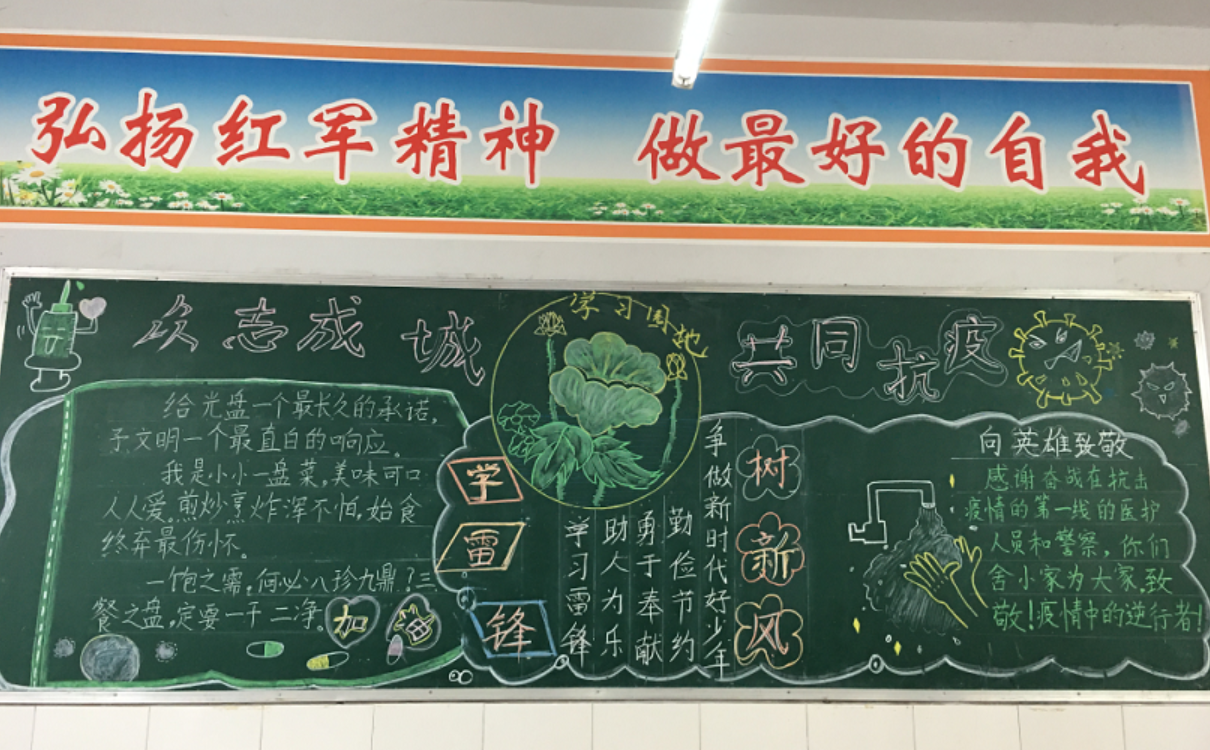 弘扬红军精神 做最好的自我
众志成城
学习园地
共同抗疫
给光盘一个最长久的承诺,
予文明一个最直白的响应。
我是小小一盘菜,美味可口
人人爱。煎炒烹炸浑不怕,始食
终弃最伤怀。
一饱之需,何必八珍九鼎?三
餐之盘,定要一干二净。
加油
学雷锋
学习雷锋
助人为乐
勇于奉献
勤俭节约
争做新时代好少年
树新风
向英雄致敬
感谢奋战在抗击
疫情的第一线的医护
人员和警察,你们
舍小家为大家.致
敬!疫情中的逆行者!